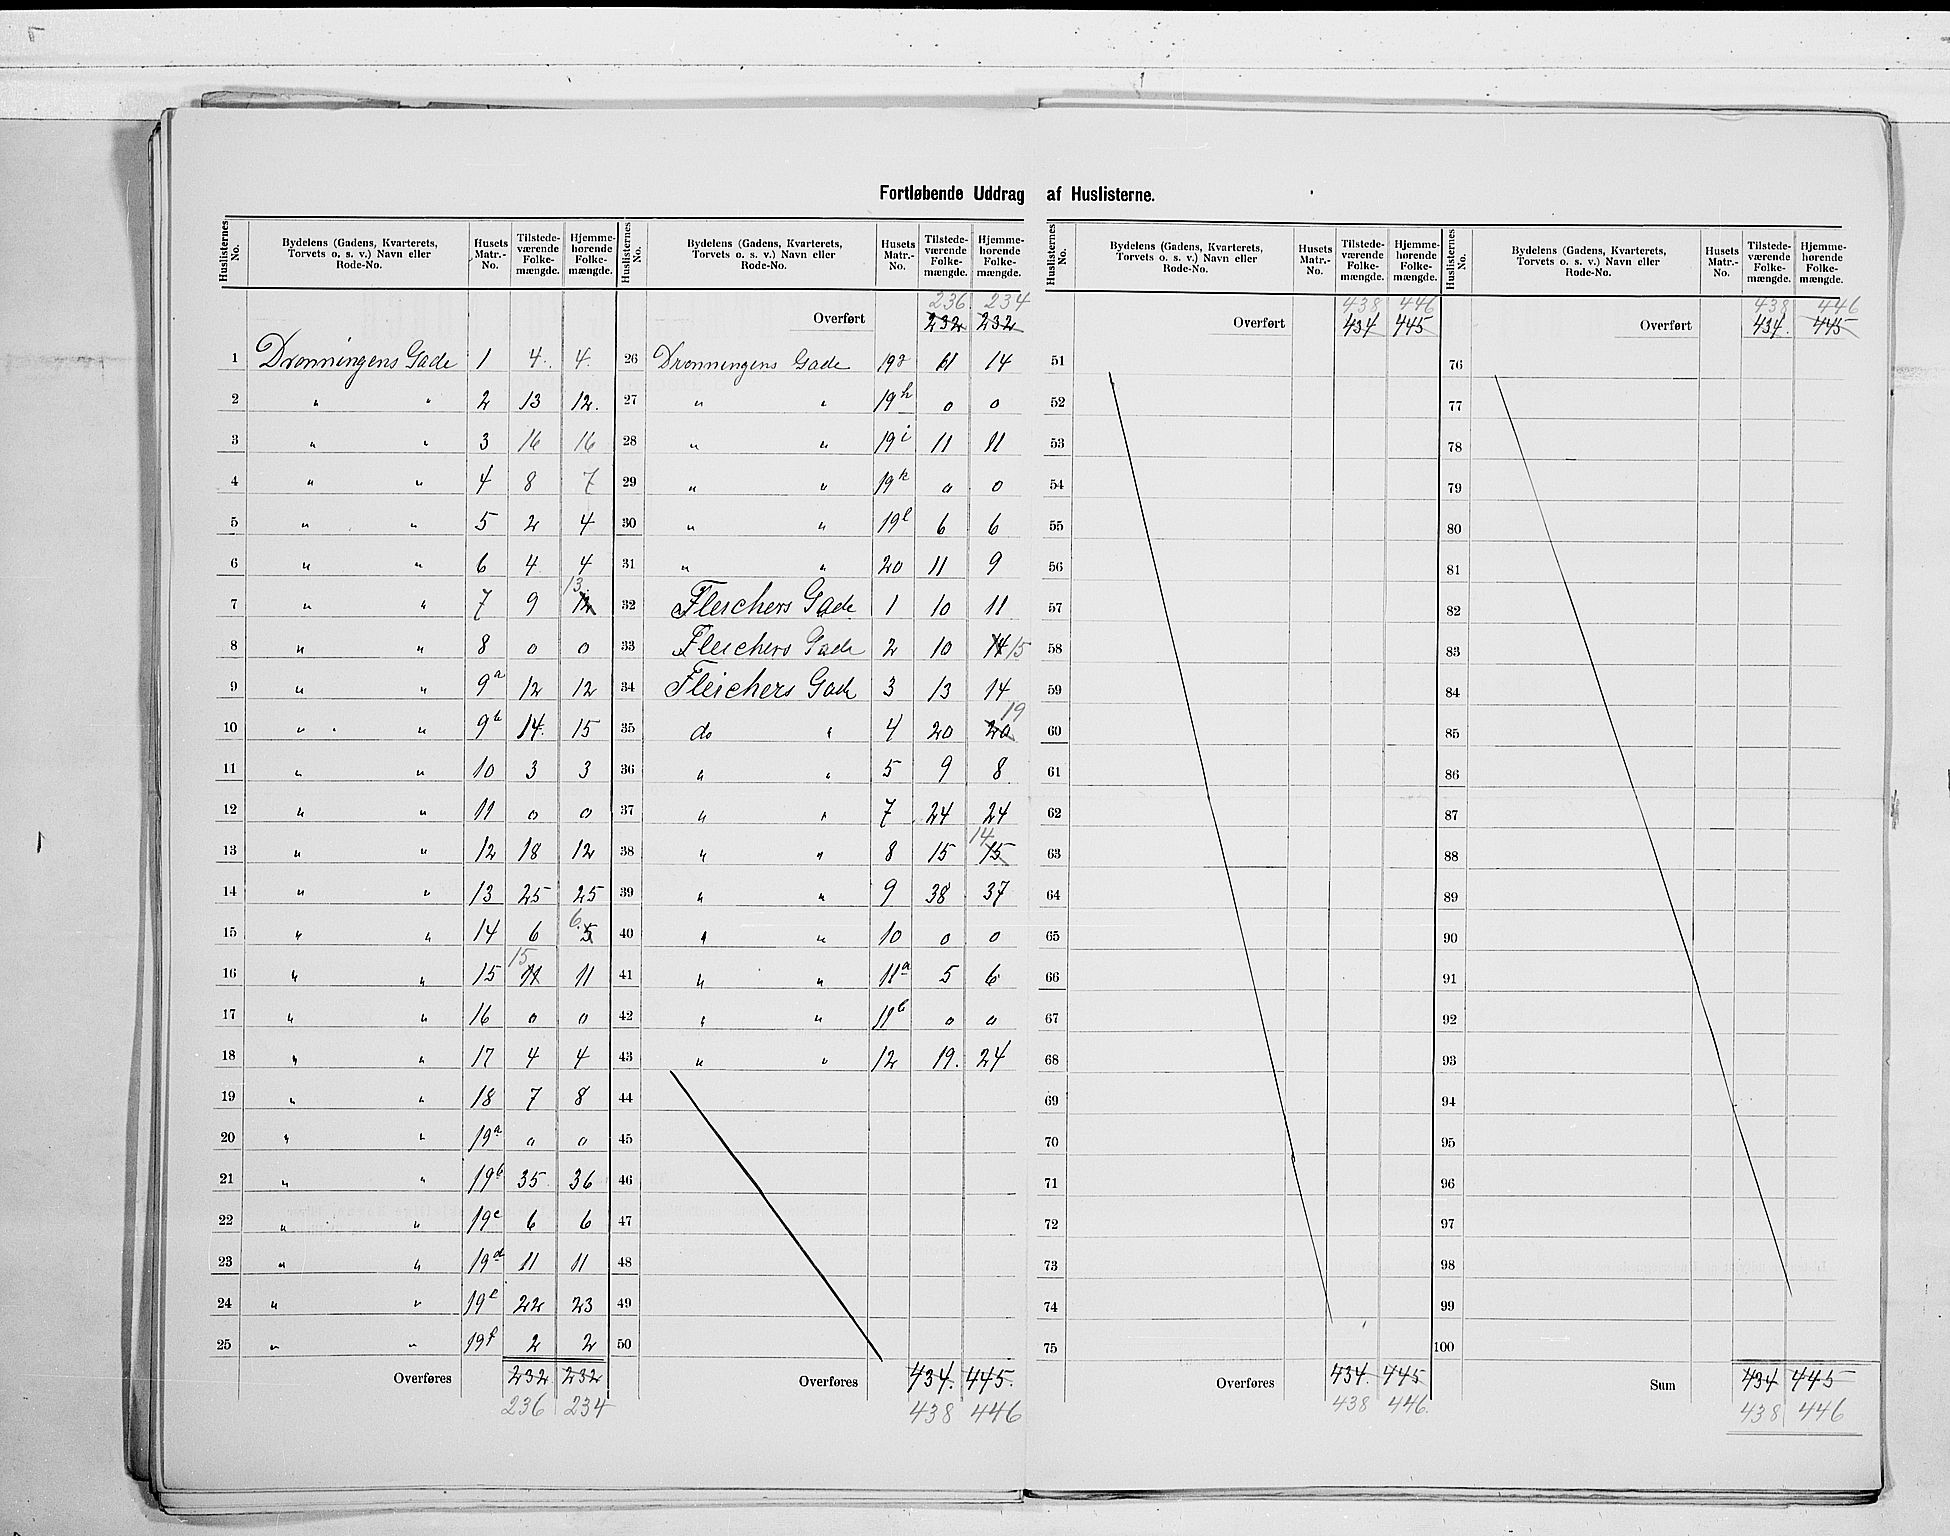 Fortløbende Uddrag af Huslisterne.
Huslisternes No. | Bydelens (Gadens, Kvarterets, Torvets o. s. v.) Navn eller Rode-No. | Husets Matr.-No. | Tilstedeværende Folkemængde. | Hjemmehørende Folkemængde.
1 Dronningens Gade 1 4. 4.
2 " " 2 13 12.
3 " " 3 16 16
4 " " 4 8 7
5 " " 5 2 4
6 " " 6 4 4
7 " " 7 9 12 13.
8 " " 8 0 0
9 " " 9a 12 12
10 " " 9b 14. 15
11 " " 10 3 3
12 " " 11 0 0
13 " " 12 18 12
14 " " 13 25 25
15 " " 14 6 5 6.
16 " " 15 11 15 11
17 " " 16 0 0
18 " " 17 4 4
19 " " 18 7 8
20 " " 19a 0 0
21 " " 19b 35 36
22 " " 19c 6 6
23 " " 19d 11 11
24 " " 19e 22 23
25 " " 19f 2 2
Overføres 232 232
236 234
Huslisternes No. | Bydelens (Gadens, Kvarterets, Torvets o. s. v.) Navn eller Rode-No. | Husets Matr.-No. | Tilstedeværende Folkemængde. | Hjemmehørende Folkemængde.
236 234
Overført 232 232
26 Dronningens Gade 19g 11 14
27 " " 19h 0 0
28 " " 19i 11 11
29 " " 19k 0 0
30 " " 19l 6 6
31 " " 20 11 9
32 Fleichers Gade 1 10 11
33 Fleichers Gade 2 10 14 15
34 Fleichers Gade 3 13 14
35 do " 4 20 20 19
36 " " 5 9 8
37 " " 7 24 24
38 " " 8 15 15 14
39 " " 9 38 37
40 " " 10 0 0
41 " " 11a 5 6
42 " " 11b 0 0
43 " " 12 19. 24
44
45
46
47
48
49
50
Overføres 434. 445.
438 446
Huslisternes No. | Bydelens (Gadens, Kvarterets, Torvets o. s. v.) Navn eller Rode-No. | Husets Matr.-No. | Tilstedeværende Folkemængde. | Hjemmehørende Folkemængde.
438 446
Overført 434 445
51
52
53
54
55
56
57
58
59
60
61
62
63
64
65
66
67
68
69
70
71
72
73
74
75
Overføres 434. 445
438 446.
Huslisternes No. | Bydelens (Gadens, Kvarterets, Torvets o. s. v.) Navn eller Rode-No. | Husets Matr.-No. | Tilstedeværende Folkemængde. | Hjemmehørende Folkemængde.
438 446
Overført 434. 445
76
77
78
79
80
81
82
83
84
85
86
87
88
89
90
91
92
93
94
95
96
97
98
99
100
Sum 434 445
438 446